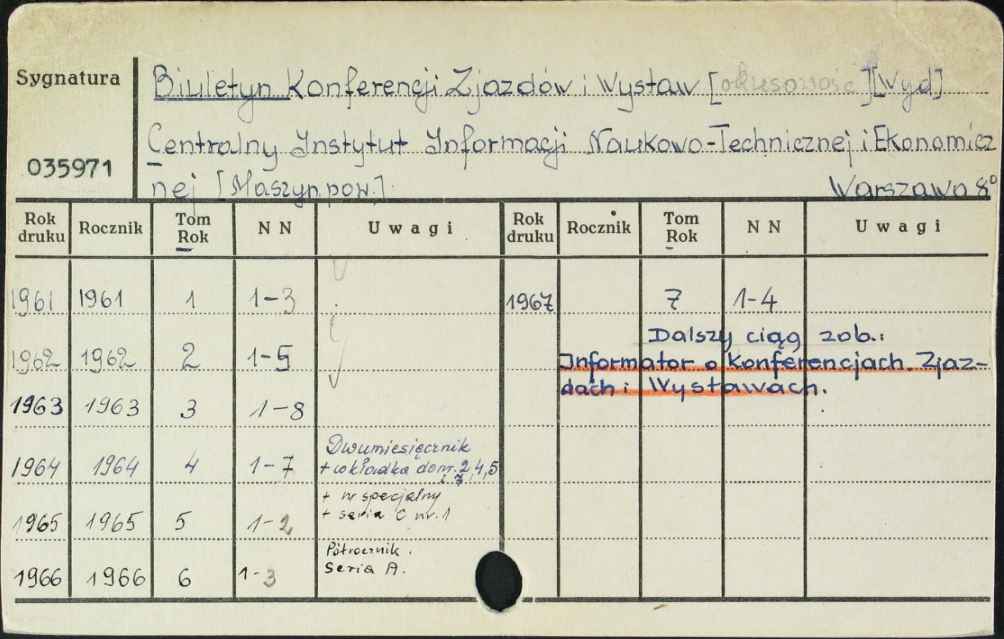 Sygnatura
Biuletyn Konferencji Zjazdów i Wystaw [okresowość] [Wyd]
Centralny Instytut Informacji Naukowo-Technicznej i Ekonomicz
035971
nej [Maszyn.pow.] Warszawa 8°
Rok druku Rocznik Tom Rok N N Uwagi Rok druku Rocznik Tom Rok N N Uwagi
1961 1961 1 1-3 1967 7 1-4
Dalszy ciąg zob.:
1962 1962 2 1-5 Informator o Konferencjach. Zjaz-
dach i Wystawach.
1963 1963 3 1-8
Dwumiesięcznik
1964 1964 4 1-7 + wkładka do nr. 2,4,5
i 7
+ nr specjalny
1965 1965 5 1-2 + seria C nr. 1
Półrocznik.
1966 1966 6 1-3 Seria A.